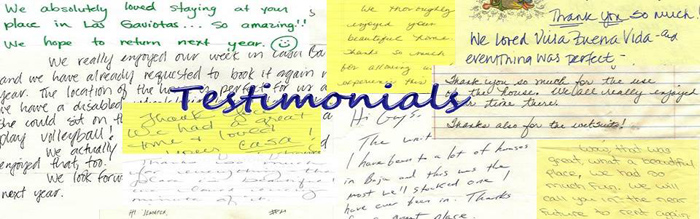 We absolutely loved staying at your
place in Las Gaviotas... So amazing!!
We hope to return next year.
We really enjoyed our week in Casa Ba
and we have already requested to book it again
year. The location of the
we have a disabled
she could sit on th
play volleyball!
We actually
enjoyed that, too!
We look forw
next year.
Testimonials
Thank
We had a great
time & loved
your casa!
We thoroughly
enjoyed your
beautiful home.
Thanks so much
for allowing us
experience this
Hi Guys.
The unit
I have been to a lot of houses
in Baja and this was the
most well stocked one I
have ever been in. Thanks
for a great place.
Thank you so much!
We loved Villa Buena Vida - and
everything was perfect -
Thank you so much for the use
of the house. We all really enjoyed
our time there.
Thanks also for the website!
Wow, that was
great, what a beautiful
place, we had so
much fun. We will
call you in the next
future